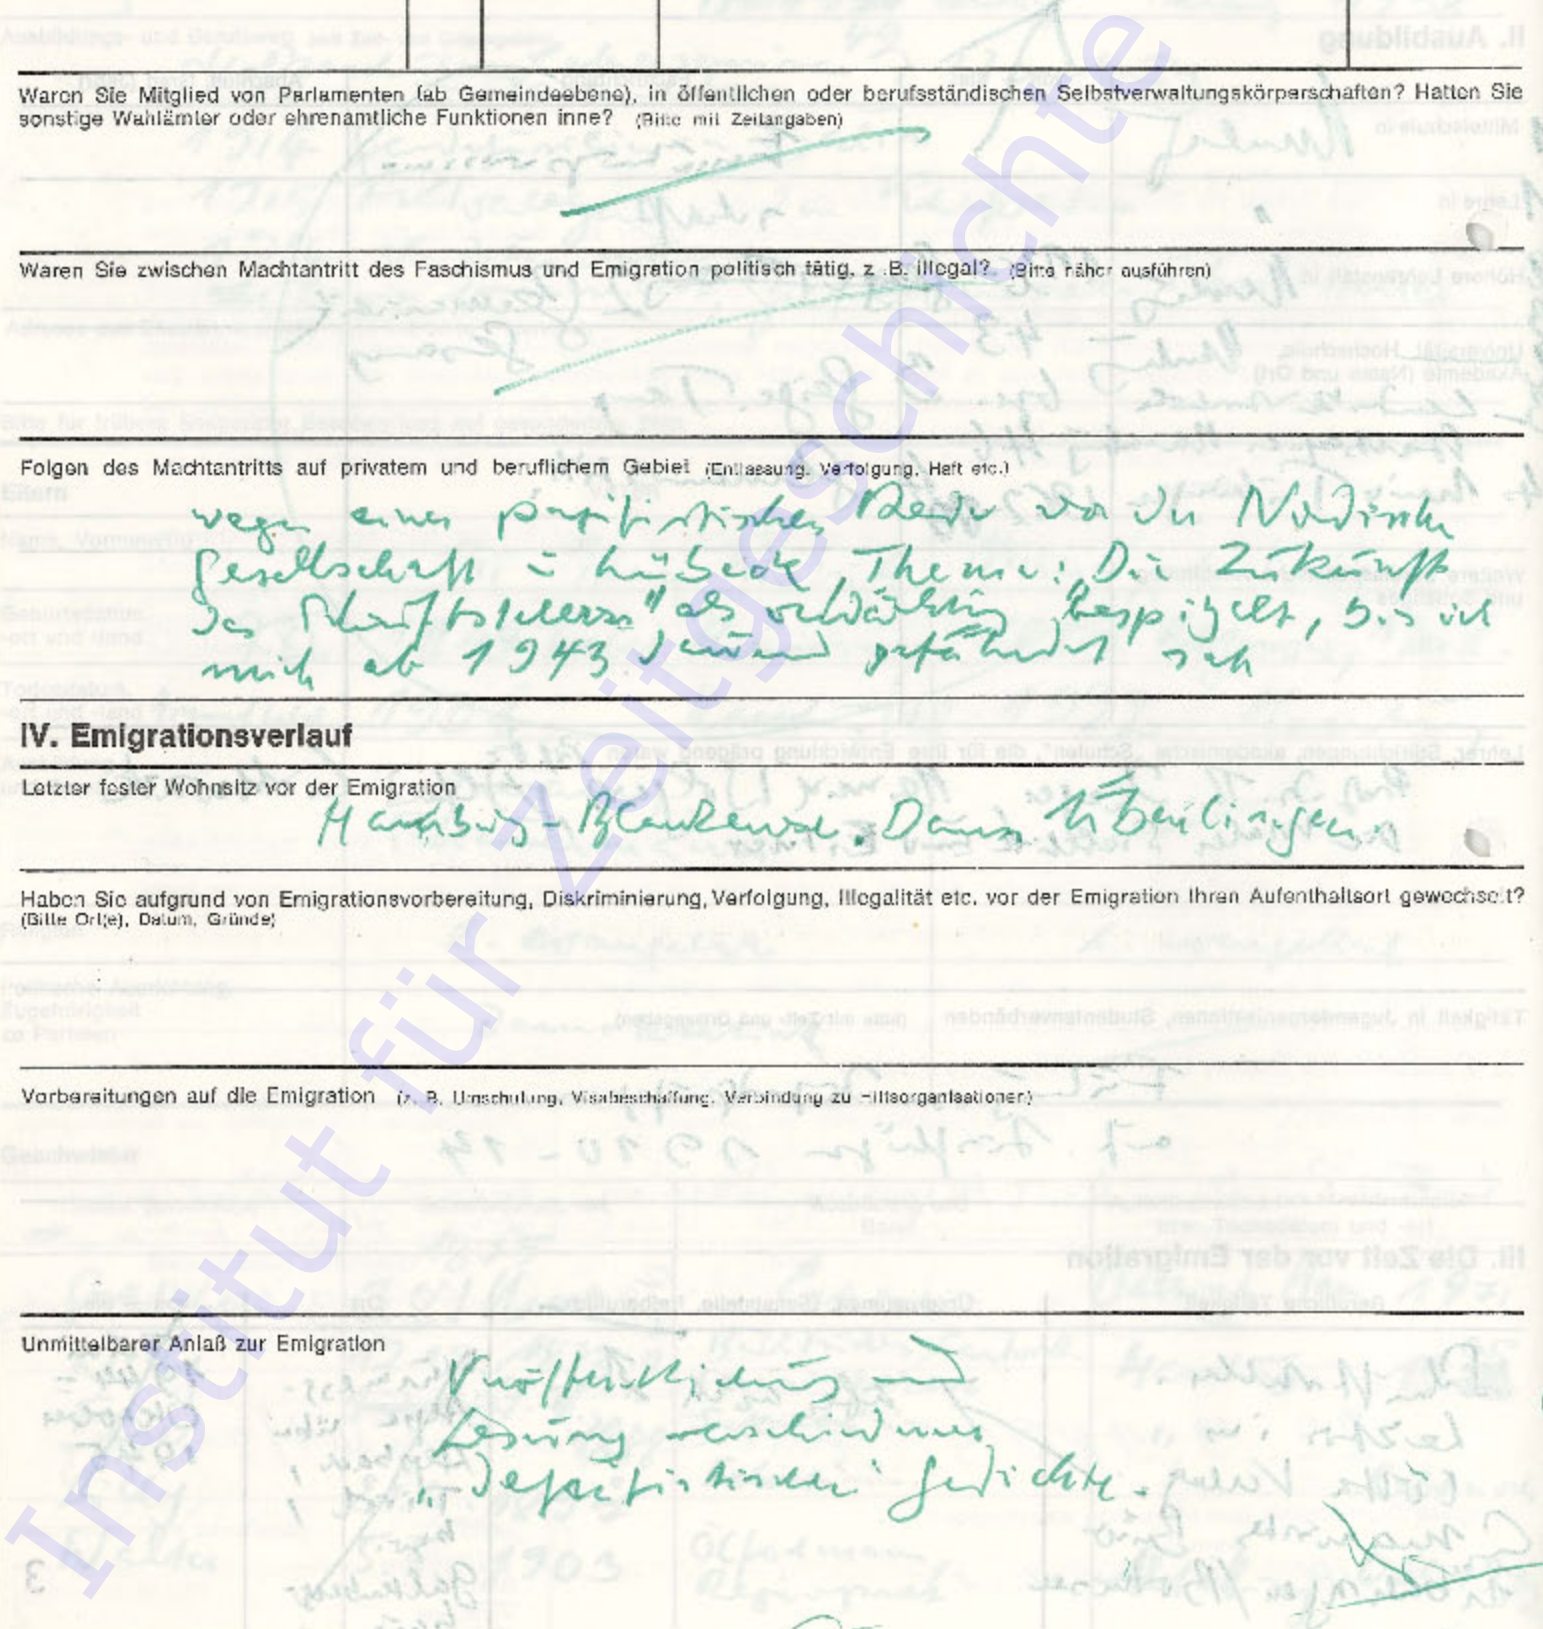 Waren Sie Mitglied von Parlamenten (ab Gemeindeebene), in öffentlichen oder berufsständischen Selbstverwaltungskörperschaften? Hatten Sie
sonstige Wahlämter oder ehrenamtliche Funktionen inne? (Bitte mit Zeitangaben)
Waren Sie zwischen Machtantritt des Faschismus und Emigration politisch tätig, z .B. illegal?. (Bitte näher ausführen)
Folgen des Machtantritts auf privatem und beruflichem Gebiet (Entlassung, Verfolgung, Haft etc.)
wegen einer pazifistischen Rede vor der Nordischen
Gesellschaft in Lübeck, Thema: „Die Zukunft
des Schriftstellers" als verdächtig bespitzelt, bis ich
mich ab 1943 dauernd gefährdet sah
IV. Emigrationsverlauf
Letzter fester Wohnsitz vor der Emigration
Hamburg-Blankenese. Dann Überlingen.
Haben Sie aufgrund von Emigrationsvorbereitung, Diskriminierung, Verfolgung, Illegalität etc. vor der Emigration Ihren Aufenthaltsort gewechselt?
(Bitte Ort(e), Datum, Gründe)
Vorbereitungen auf die Emigration (z. B. Umschulung, Visabeschaffung, Verbindung zu Hilfsorganisationen)
Unmittelbarer Anlaß zur Emigration
Veröffentlichung und
Lesung verschiedener
„defaitistischer" Gedichte.
Institut für Zeitgeschichte